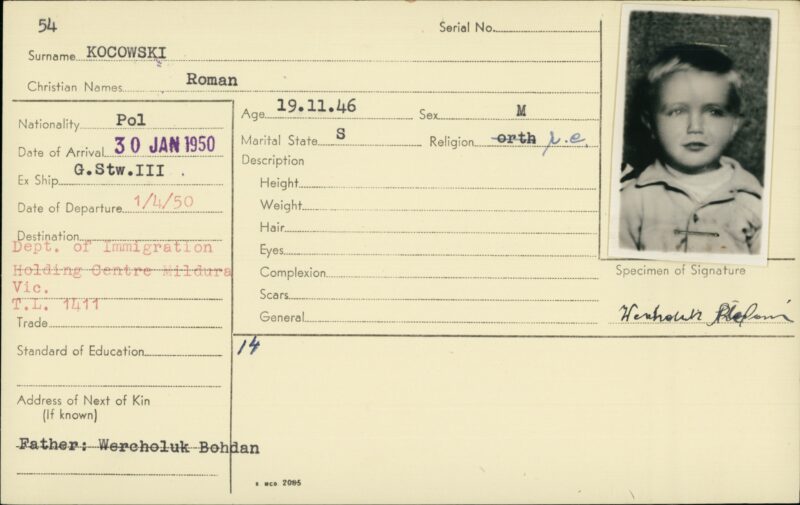 54
Serial No.
Surname KOCOWSKI
Christian Names Roman
Nationality Pol
Date of Arrival 30 JAN 1950
Ex Ship G.Stw.III .
Date of Departure 1/4/50
Destination
Dept. of Immigration
Holding Centre Mildura
Vic.
T.L. 1411
Trade
Standard of Education
Address of Next of Kin
(If known)
Father: Wercholuk Bohdan
Age 19.11.46 Sex M
Marital State S Religion orth r.c.
Description
Height
Weight
Hair
Eyes
Complexion
Scars
General
14
Specimen of Signature
Wercholuk Stefani
2095